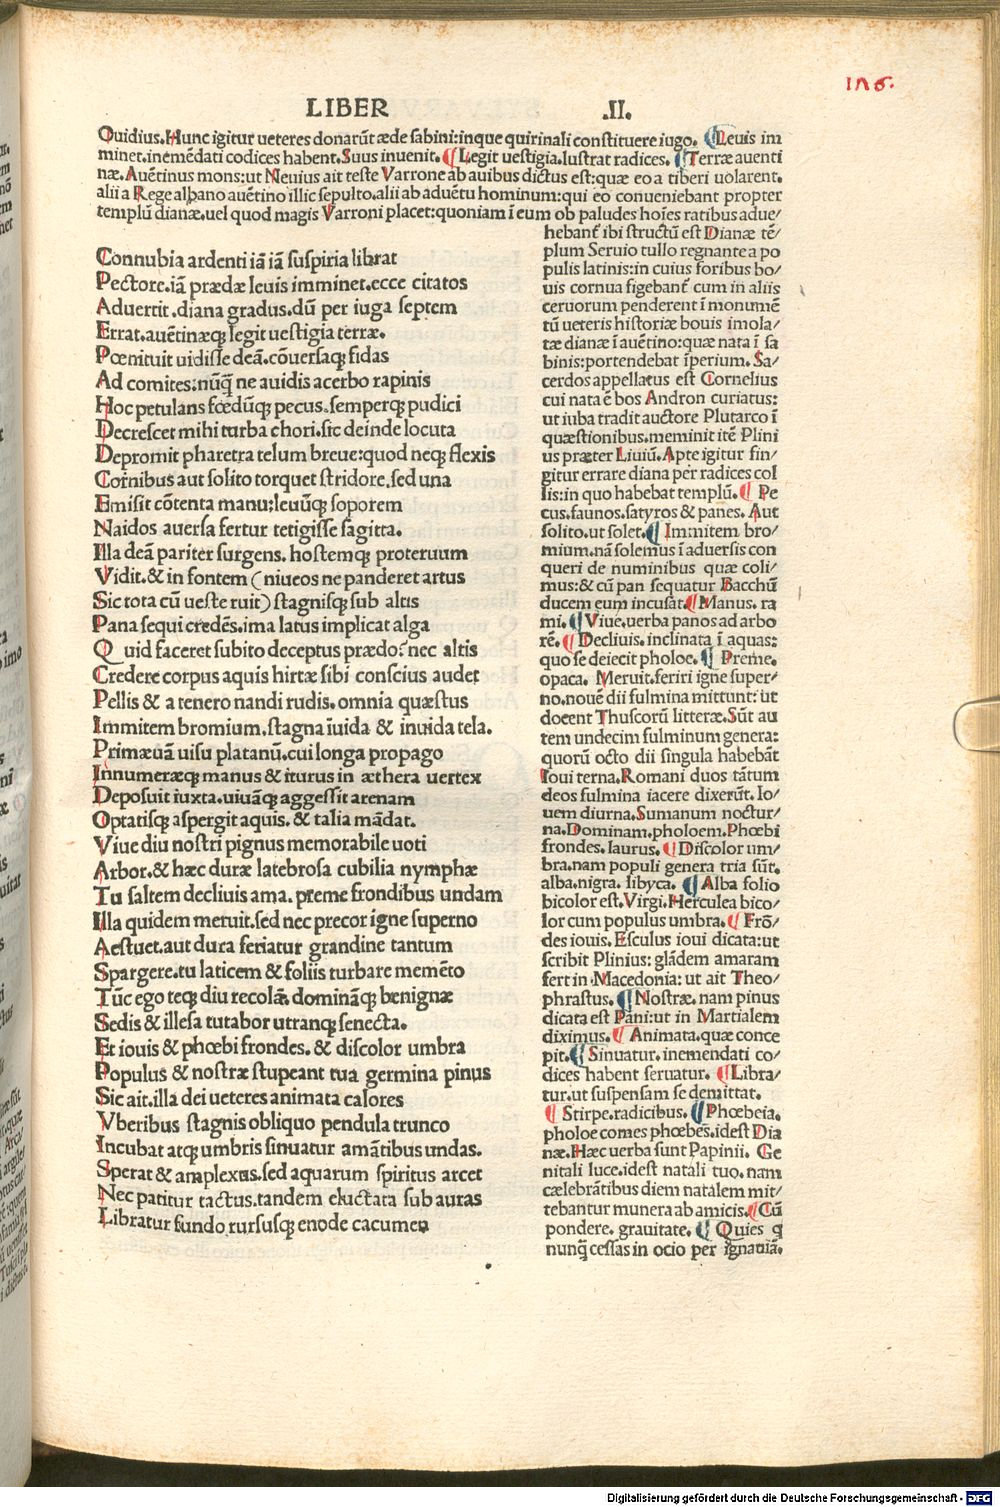 LIBER .II.
Ouidius.Hunc igitur ueteres donarũt æde sabini:inque quirinali constituere iugo. ¶Leuis im
minet.inemẽdati codices habent.Suus inuenit.¶Legit uestigia.lustrat radices.¶Terræ auenti
næ.Auẽtinus mons:ut Neuius ait teste Varrone ab auibus dictus est:quæ eo a tiberi uolarent.
alii a Rege albano auẽtino illic sepulto.alii ab aduẽtu hominum:qui eo conueniebant propter
templũ dianæ.uel quod magis Varroni placet:quoniam ĩ eum ob paludes hoĩes ratibus adue/
Connubia ardenti iã iã suspiria librat
Pectore.iã prædæ leuis imminet.ecce citatos
Aduertit.diana gradus.dũ per iuga septem
Errat.auẽtinæq; legit uestigia terræ.
Pœnituit uidisse deã.cõuersaq; fidas
Ad comites:nũq̃ ne auidis acerbo rapinis
Hoc petulans fœdũq; pecus.semperq; pudici
Decrescet mihi turba chori.sic deinde locuta
Depromit pharetra telum breue:quod neq; flexis
Cornibus aut solito torquet stridore.sed una
Emisit cõtenta manu:leuũq; soporem
Naidos auersa fertur tetigisse sagitta.
Illa deã pariter surgens. hostemq; proteruum
Vidit.& in fontem (niueos ne panderet artus
Sic tota cũ ueste ruit) stagnisq; sub altis
Pana sequi credẽs.ima latus implicat alga
Quid faceret subito deceptus prædo? nec altis
Credere corpus aquis hirtæ sibi conscius audet
Pellis & a tenero nandi rudis.omnia quæstus
Immitem bromium.stagna ĩuida & inuida tela.
Primæuã uisu platanũ.cui longa propago
Innumeræq; manus & iturus in æthera uertex
Deposuit iuxta.uiuãq; aggessit arenam
Optatisq; aspergit aquis.& talia mãdat.
Viue diu nostri pignus memorabile uoti
Arbor.& hæc duræ latebrosa cubilia nymphæ
Tu saltem decliuis ama.preme frondibus undam
Illa quidem meruit.sed nec precor igne superno
Aestuet.aut dura feriatur grandine tantum
Spargere.tu laticem & foliis turbare memẽto
Tũc ego teq; diu recolã.dominãq; benignæ
Sedis & illesa tutabor utranq; senecta.
Et iouis & phœbi frondes.& discolor umbra
Populus & nostræ stupeant tua germina pinus
Sic ait.illa dei ueteres animata calores
Vberibus stagnis obliquo pendula trunco
Incubat atq; umbris sinuatur amãtibus undas.
Sperat & amplexus.sed aquarum spiritus arcet
Nec patitur tactus.tandem eluctata sub auras
Libratur fundo rursusq; enode cacumen
hebanť ibi structũ est Dianæ tẽ/
plum Seruio tullo regnante a po
pulis latinis:in cuius foribus bo/
uis cornua figebanť cum in aliis
ceruorum penderent ĩ monumẽ
tũ ueteris historiæ bouis imola/
tæ dianæ ĩ auẽtino:quæ nata ĩ sa
binis:portendebat ĩperium. Sa/
cerdos appellatus est Cornelius
cui nata ẽ bos Andron curiatus:
ut iuba tradit auctore Plutarco ĩ
quæstionibus.meminit itẽ Plini
us præter Liuiũ.Apte igitur fin/
gitur errare diana per radices col
lis:in quo habebat templũ.¶Pe
cus.faunos.satyros & panes. Aut
solito.ut solet.¶Immitem bro/
mium.nã solemus ĩ aduersis con
queri de numinibus quæ coli/
mus:& cũ pan sequatur Bacchũ
ducem eum incusat.¶Manus.ra
mi.¶Viue.uerba panos ad arbo
rẽ.¶Decliuis.inclinata ĩ aquas:
quo se deiecit pholoe.¶Preme.
opaca. Meruit.feriri igne super/
no.nouẽ dii fulmina mittunt:ut
docent Thuscorũ litteræ.Sũt au
tem undecim fulminum genera:
quorũ octo dii singula habebãt
Ioui terna.Romani duos tãtum
deos fulmina iacere dixerũt.Io/
uem diurna.Sumanum noctur/
na.Dominam.pholoem.Phœbi
frondes.laurus.¶Discolor um/
bra.nam populi genera tria sũt.
alba.nigra.libyca.¶Alba folio
bicolor est.Virgi.Herculea bico/
lor cum populus umbra.¶Frõ/
des iouis.Esculus ioui dicata:ut
scribit Plinius:glãdem amaram
fert in Macedonia:ut ait Theo/
phrastus.¶Nostræ.nam pinus
dicata est Pani:ut in Martialem
diximus.¶Animata.quæ conce
pit.¶Sinuatur.inemendati co/
dices habent seruatur.¶Libra/
tur.ut suspensam se demittat.
¶Stirpe.radicibus.¶Phœbeia.
pholoe comes phœbes.idest Dia
næ.Hæc uerba sunt Papinii. Ge
nitali luce.idest natali tuo.nam
cælebrãtibus diem natalem mit/
tebantur munera ab amicis.¶Cũ
pondere.grauitate.¶Quies q
nunq̃ cessas in ocio per ignauiã.
Digitalisierung gefördert durch die Deutsche Forschungsgemeinschaft - DFG